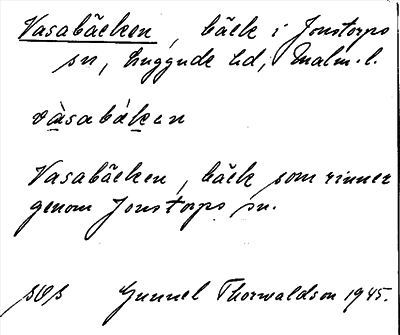 Vasabäcken, bäck i Jonstorps
sn, Luggude hd, Malm. l.
vàsabákən
Vasabäcken, bäck som rinner
genom Jonstorps sn.
Gunnel Thorwaldson 1945.